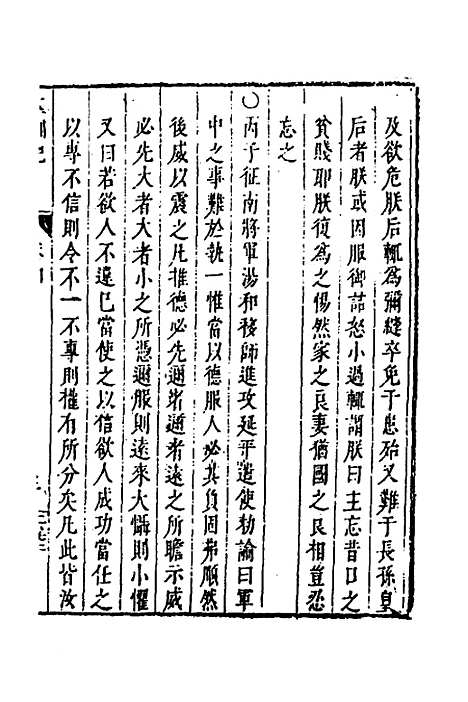 及欲危朕后輒為彌縫卒免于患殆又難于長孫皇
后者朕或因服御詰怒小過輒謂朕曰主忘昔日之
貧賤耶朕復為之惕然家之良妻猶國之良相豈忍
忘之
○丙子征南將軍湯和移師進攻延平遣使勑諭曰軍
中之事難於執一惟當以德服人必其負固弗順然
後威以震之凡推德必先邇者邇者遠之所瞻示威
必先大者大者小之所憑邇服則遠來大懾則小懼
又曰若欲人不違已當使之以信欲人成功當任之
以專不信則令不一不專則權有所分矣凡此皆汝